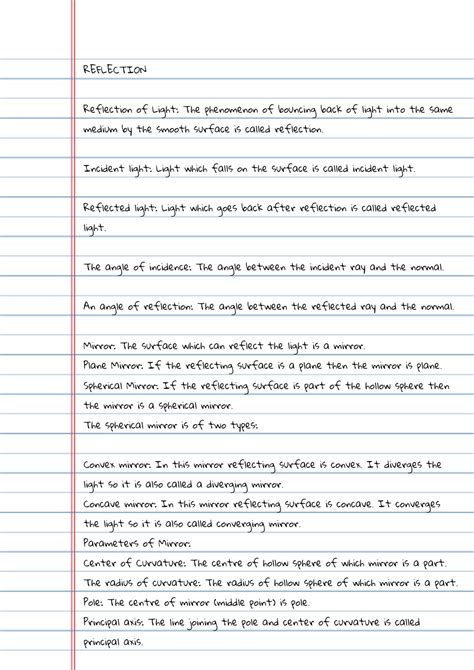 REFLECTION
Reflection of Light: The phenomenon of bouncing back of light into the same
medium by the smooth surface is called reflection.
Incident light: Light which falls on the surface is called incident light.
Reflected light: Light which goes back after reflection is called reflected
light.
The angle of incidence: The angle between the incident ray and the normal.
An angle of reflection: The angle between the reflected ray and the normal.
Mirror: The surface which can reflect the light is a mirror.
Plane Mirror: If the reflecting surface is a plane then the mirror is plane.
Spherical Mirror: If the reflecting surface is part of the hollow sphere then
the mirror is a spherical mirror.
The spherical mirror is of two types:
Convex mirror: In this mirror reflecting surface is convex. It diverges the
light so it is also called a diverging mirror.
Concave mirror: In this mirror reflecting surface is concave. It converges
the light so it is also called converging mirror.
Parameters of Mirror:
Center of Curvature: The centre of hollow sphere of which mirror is a part.
The radius of curvature: The radius of hollow sphere of which mirror is a part.
Pole: The centre of mirror (middle point) is pole.
Principal axis: The line joining the pole and center of curvature is called
principal axis.